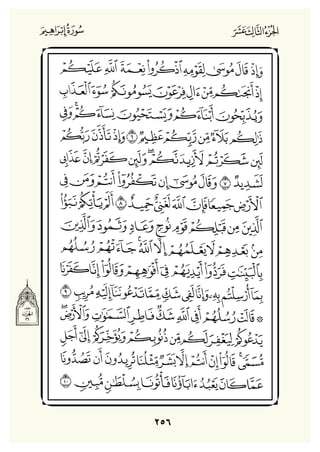 الجزء الثالث عشر
سورة إبراهيم
وَإِذۡ قَالَ مُوسَىٰ لِقَوۡمِهِ ٱذۡكُرُواْ نِعۡمَةَ ٱللَّهِ عَلَيۡكُمۡ
إِذۡ أَنجَىٰكُم مِّنۡ ءَالِ فِرۡعَوۡنَ يَسُومُونَكُمۡ سُوٓءَ ٱلۡعَذَابِ
وَيُذَبِّحُونَ أَبۡنَآءَكُمۡ وَيَسۡتَحۡيُونَ نِسَآءَكُمۡۚ وَفِي
ذَٰلِكُم بَلَآءٞ مِّن رَّبِّكُمۡ عَظِيمٞ ٦ وَإِذۡ تَأَذَّنَ رَبُّكُمۡ
لَئِن شَكَرۡتُمۡ لَأَزِيدَنَّكُمۡۖ وَلَئِن كَفَرۡتُمۡ إِنَّ عَذَابِي
لَشَدِيدٞ ٧ وَقَالَ مُوسَىٰٓ إِن تَكۡفُرُوٓاْ أَنتُمۡ وَمَن فِي
ٱلۡأَرۡضِ جَمِيعٗا فَإِنَّ ٱللَّهَ لَغَنِيٌّ حَمِيدٌ ٨ أَلَمۡ يَأۡتِكُمۡ نَبَؤُاْ
ٱلَّذِينَ مِن قَبۡلِكُمۡ قَوۡمِ نُوحٖ وَعَادٖ وَثَمُودَ وَٱلَّذِينَ
مِنۢ بَعۡدِهِمۡ لَا يَعۡلَمُهُمۡ إِلَّا ٱللَّهُۚ جَآءَتۡهُمۡ رُسُلُهُم
بِٱلۡبَيِّنَٰتِ فَرَدُّوٓاْ أَيۡدِيَهُمۡ فِيٓ أَفۡوَٰهِهِمۡ وَقَالُوٓاْ إِنَّا كَفَرۡنَا
بِمَآ أُرۡسِلۡتُم بِهِۦ وَإِنَّا لَفِي شَكّٖ مِّمَّا تَدۡعُونَنَآ إِلَيۡهِ مُرِيبٖ ٩
۞ قَالَتۡ رُسُلُهُمۡ أَفِي ٱللَّهِ شَكّٞ فَاطِرِ ٱلسَّمَٰوَٰتِ وَٱلۡأَرۡضِۖ
يَدۡعُوكُمۡ لِيَغۡفِرَ لَكُم مِّن ذُنُوبِكُمۡ وَيُؤَخِّرَكُمۡ إِلَىٰٓ أَجَلٖ
مُّسَمّٗىۚ قَالُوٓاْ إِنۡ أَنتُمۡ إِلَّا بَشَرٞ مِّثۡلُنَا تُرِيدُونَ أَن تَصُدُّونَا
عَمَّا كَانَ يَعۡبُدُ ءَابَآؤُنَا فَأۡتُونَا بِسُلۡطَٰنٖ مُّبِينٖ ١٠
٢٥٦